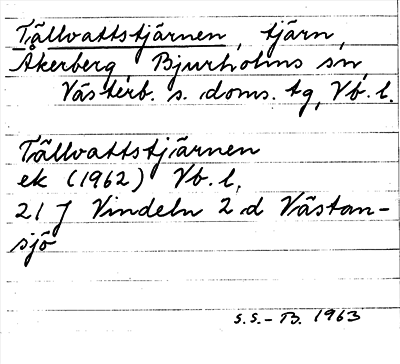 Tällvattstjärnen, tjärn,
Åkerberg, Bjurholms sn,
Västerb. s. doms. tg, Vb. l.
Tällvattstjärnen
ek (1962) Vb. l,
21 J Vindeln 2 d Västan-
sjö
S.S.-B. 1963